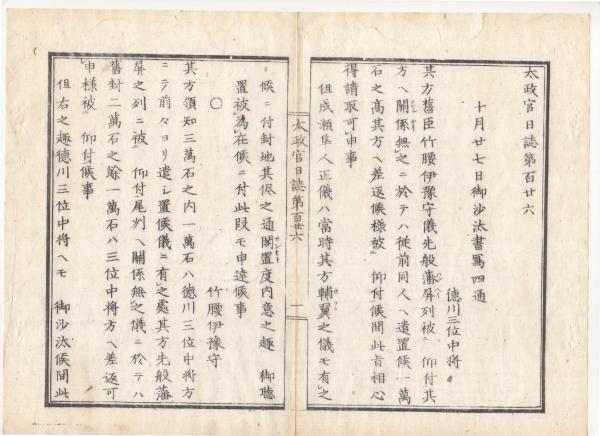 太政官日誌第百廿六
十月廿七日御沙汰書寫四通
徳川三位中将
其方舊臣竹腰伊豫守儀先般藩屏列被 仰付其
方ヘ關係無之ニ於テハ従前同人ヘ遣置候一萬
石之高其方ヘ差返候様被 仰付候間此旨相心
得請取可申事
但成瀬隼人正儀ハ當時其方輔翼之儀モ有之
太政官日誌第百廿六 一
候ニ付封地其侭之通閣置度内意之趣 御聴
置被為在候ニ付此段モ申達候事
○ 竹腰伊豫守
其方領知三萬石之内一萬石ハ徳川三位中将方
ニテ前々ヨリ遣シ置候儀ニ有之處其方先般藩
屏之列ニ被 仰付尾州ヘ關係無之儀ニ於テハ
舊封二萬石之餘一萬石ハ三位中将方ヘ差返可
申様被 仰付候事
但右之趣徳川三位中将ヘモ 御沙汰候間此